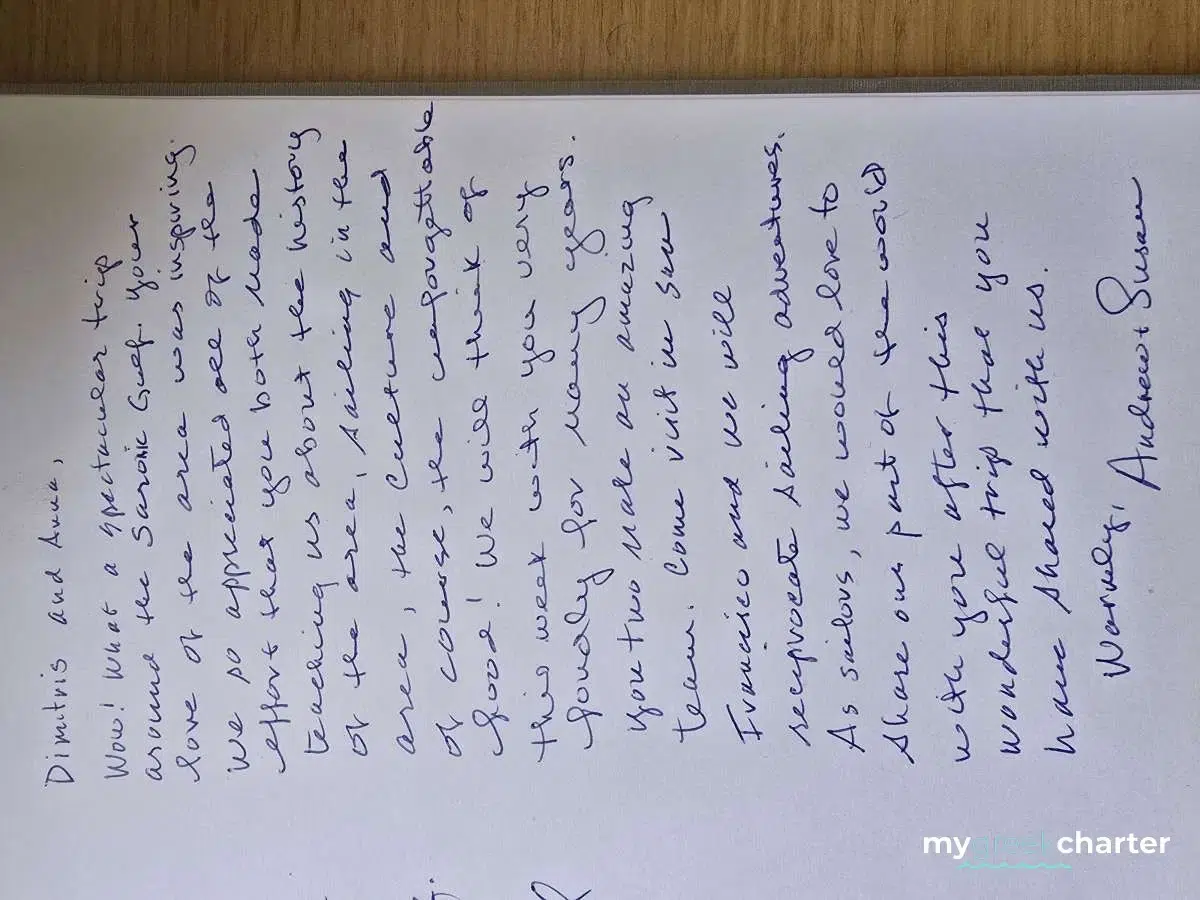 Dimitris and Anna,
Wow! What a spectacular trip
around the Saronic Gulf. Your
love of the area was inspiring.
We so appreciated all of the
effort that you both made
teaching us about the history
of the area, sailing in the
area, the culture and
of course, the unforgettable
food! We will think of
this week with you very
fondly for many years.
You two make an amazing
team. Come visit in San
Francisco and we will
reciprocate sailing adventures.
As sailors, we would love to
share our part of the world
with you after this
wonderful trip that you
have shared with us.
Warmly,
Andrew + Susan
my greek charter